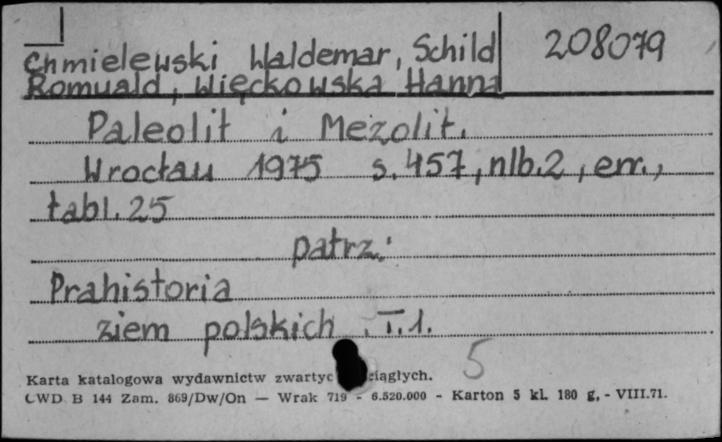 Chmielewski Waldemar, Schild 208079
Romuald, Więckowska Hanna
Paleolit i Mezolit.
Wrocław 1975 s. 457, nlb. 2, err.,
tabl. 25
patrz:
Prahistoria
ziem polskich. T. 1.
5
Karta katalogowa wydawnictw ciągłych.
CWD B 144 Zam. 869/Dw/On — Wrak 719 - 6.520.000 - Karton 5 kl. 180 g. - VIII.71.